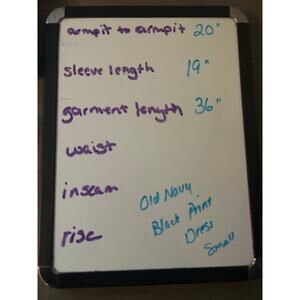 armpit to armpit 20"
sleeve length 19"
garment length 36"
waist
inseam
rise
Old Navy
Black Print
Dress
Small